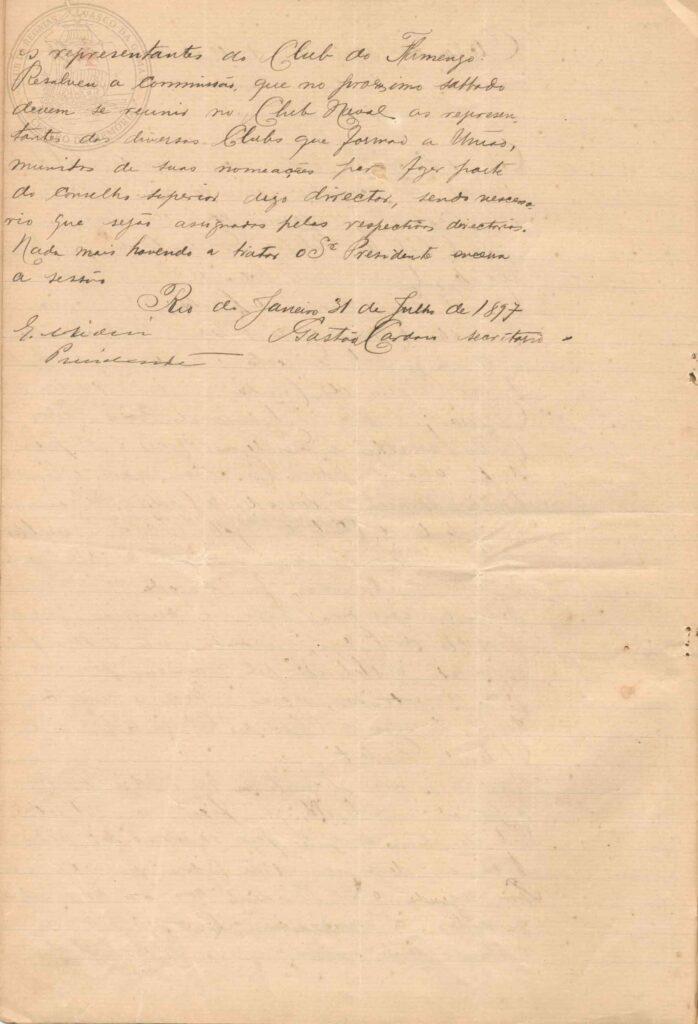 os representantes do Club do Flamengo.
Resolveu a commissão, que no proximo sabbado
devem se reunir no Club Naval os represen-
tantes dos diversos Clubs que formão a União,
munidos de suas nomeações par fazer parte
do conselho superior digo director, sendo nescessa
rio que sejão assignados pelas respectivas directorias.
Nada mais havendo a tratar o Sr. Presidente encerra
a sessão
Rio de Janeiro, 31 de Julho de 1897
Gastão Cardoso secretario
E.
Presidente
CLUB DE REGATAS VASCO DA GAMA